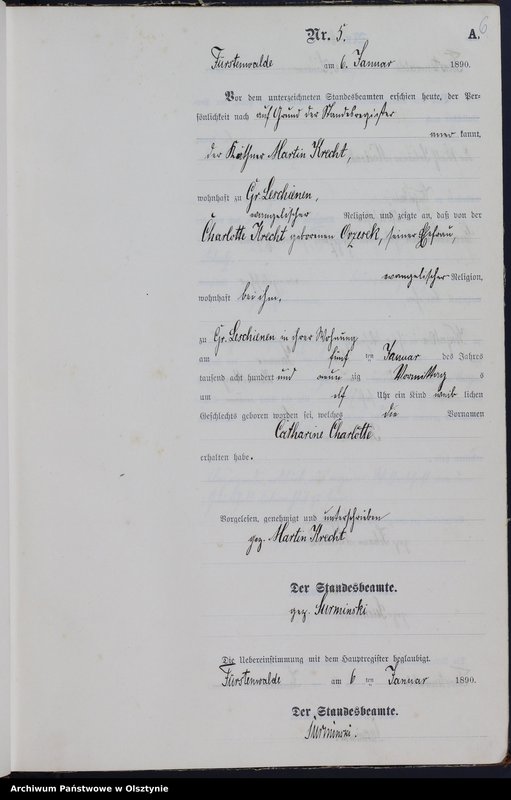 6
Nr. 5. A.
Fürstenwalde am 6. Januar 1890.
Vor dem unterzeichneten Standesbeamten erschien heute, der Per-
sönlichkeit nach auf Grund der Standesregister
kannt,
der Käthner Martin Krecht,
wohnhaft zu Gr. Leschienen,
evangelischer Religion, und zeigte an, daß von der
Charlotte Krecht geborenen Orzesek, seiner Ehefrau,
evangelischer Religion,
wohnhaft bei ihm,
zu Gr. Leschienen in ihrer Wohnung
am fünf ten Januar des Jahres
tausend acht hundert und neun zig Vormittag s
um elf Uhr ein Kind weib lichen
Geschlechts geboren worden sei, welches die Vornamen
Catharine Charlotte
erhalten habe.
Vorgelesen, genehmigt und unterschrieben
gez. Martin Krecht
Der Standesbeamte.
gez. Surminski
Die Uebereinstimmung mit dem Hauptregister beglaubigt.
Fürstenwalde am 6 ten Januar 1890.
Der Standesbeamte.
Surminski.
Archiwum Państwowe w Olsztynie